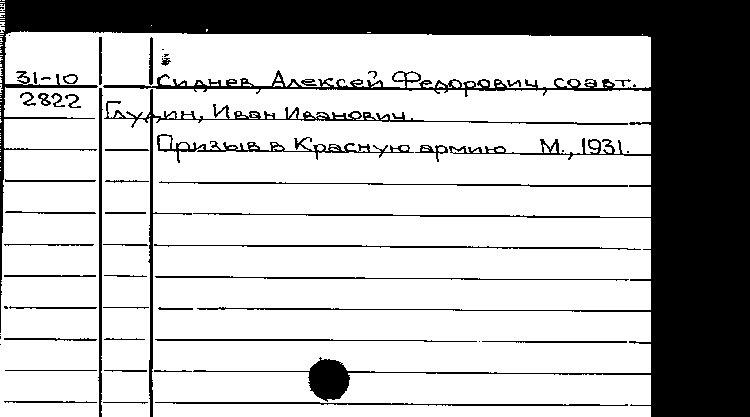 31-10 Сиднев, Алексей Федорович, соавт.
2822 Глудин, Иван Иванович.
Призыв в Красную армию. М., 1931.